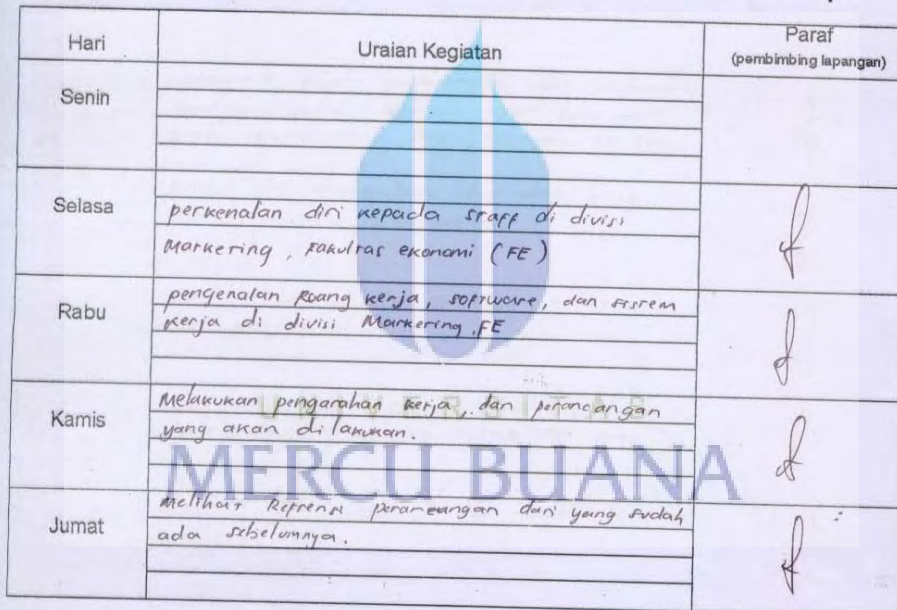 Hari
Uraian Kegiatan
Paraf
(pembimbing lapangan)
Senin
Selasa
perkenalan diri kepada staff di divisi
Marketing, Fakultas ekonomi (FE)
Rabu
pengenalan Ruang kerja, software, dan sistem
kerja di divisi Marketing FE
Kamis
Melakukan pengarahan kerja, dan perancangan
yang akan dilakukan.
UNIVERSITAS
MERCU BUANA
Jumat
Melihat Refrensi perancangan dari yang sudah
ada sebelumnya.